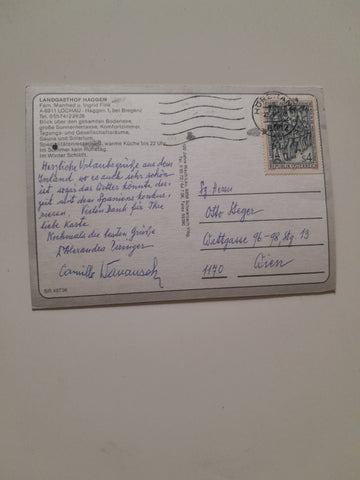 LANDGASTHOF HAGGEN
Fam. Manfred u. Ingrid Fink
A-6911 LOCHAU - Haggen 1, bei Bregenz
Tel. 05574/22926
Blick über den gesamten Bodensee,
große Sonnenterrasse, Komfortzimmer,
Tagungs- und Gesellschaftsräume,
Sauna und Solarium,
Spezialitätenrestaurant, warme Küche bis 22 Uhr
im Sommer kein Ruhetag,
im Winter
Herzliche Urlaubsgrüße aus dem
Inland, wo es auch sehr schön
ist, sogar das Wetter könnte der-
zeit mit dem Spaniens konkur-
rieren. Vielen Dank für Ihre
liebe Karte.
Nochmals die besten Grüße
Camillo
HOHE
S 4
Otto Geger
Wattgasse 96-98 Stg. 13
1170 Wien